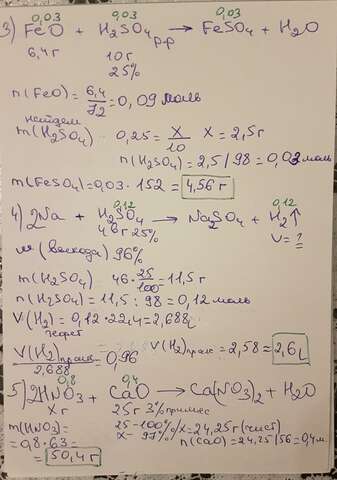 0,03 0,03 0,03
3) FeO + H₂SO₄ р-р → FeSO₄ + H₂O
6,4г 10г
25%
n(FeO) = 6,4/72 = 0,09 моль
найдем
m(H₂SO₄) 0,25 = x/10 x = 2,5г
n(H₂SO₄) = 2,5/98 = 0,03 моль
m(FeSO₄) = 0,03 · 152 = 4,56г
0,12 0,12
4) 2Na + H₂SO₄ → Na₂SO₄ + H₂↑
46г 25% V = ?
(выхода) 96%
m(H₂SO₄) 46 · 25/100 = 11,5г
n(H₂SO₄) = 11,5 : 98 = 0,12 моль
V(H₂) = 0,12 · 22,4 = 2,688L
теорет
V(H₂)практ/2,688 = 0,96 V(H₂)практ = 2,58 ≈ 2,6L
0,8 0,4
5) 2HNO₃ + CaO → Ca(NO₃)₂ + H₂O
xг 25г 3% примес
m(HNO₃) = 25 - 100%
= 0,8 · 63 = x - 97% x = 24,25г (чист)
= 50,4г n(CaO) = 24,25/56 = 0,4м.